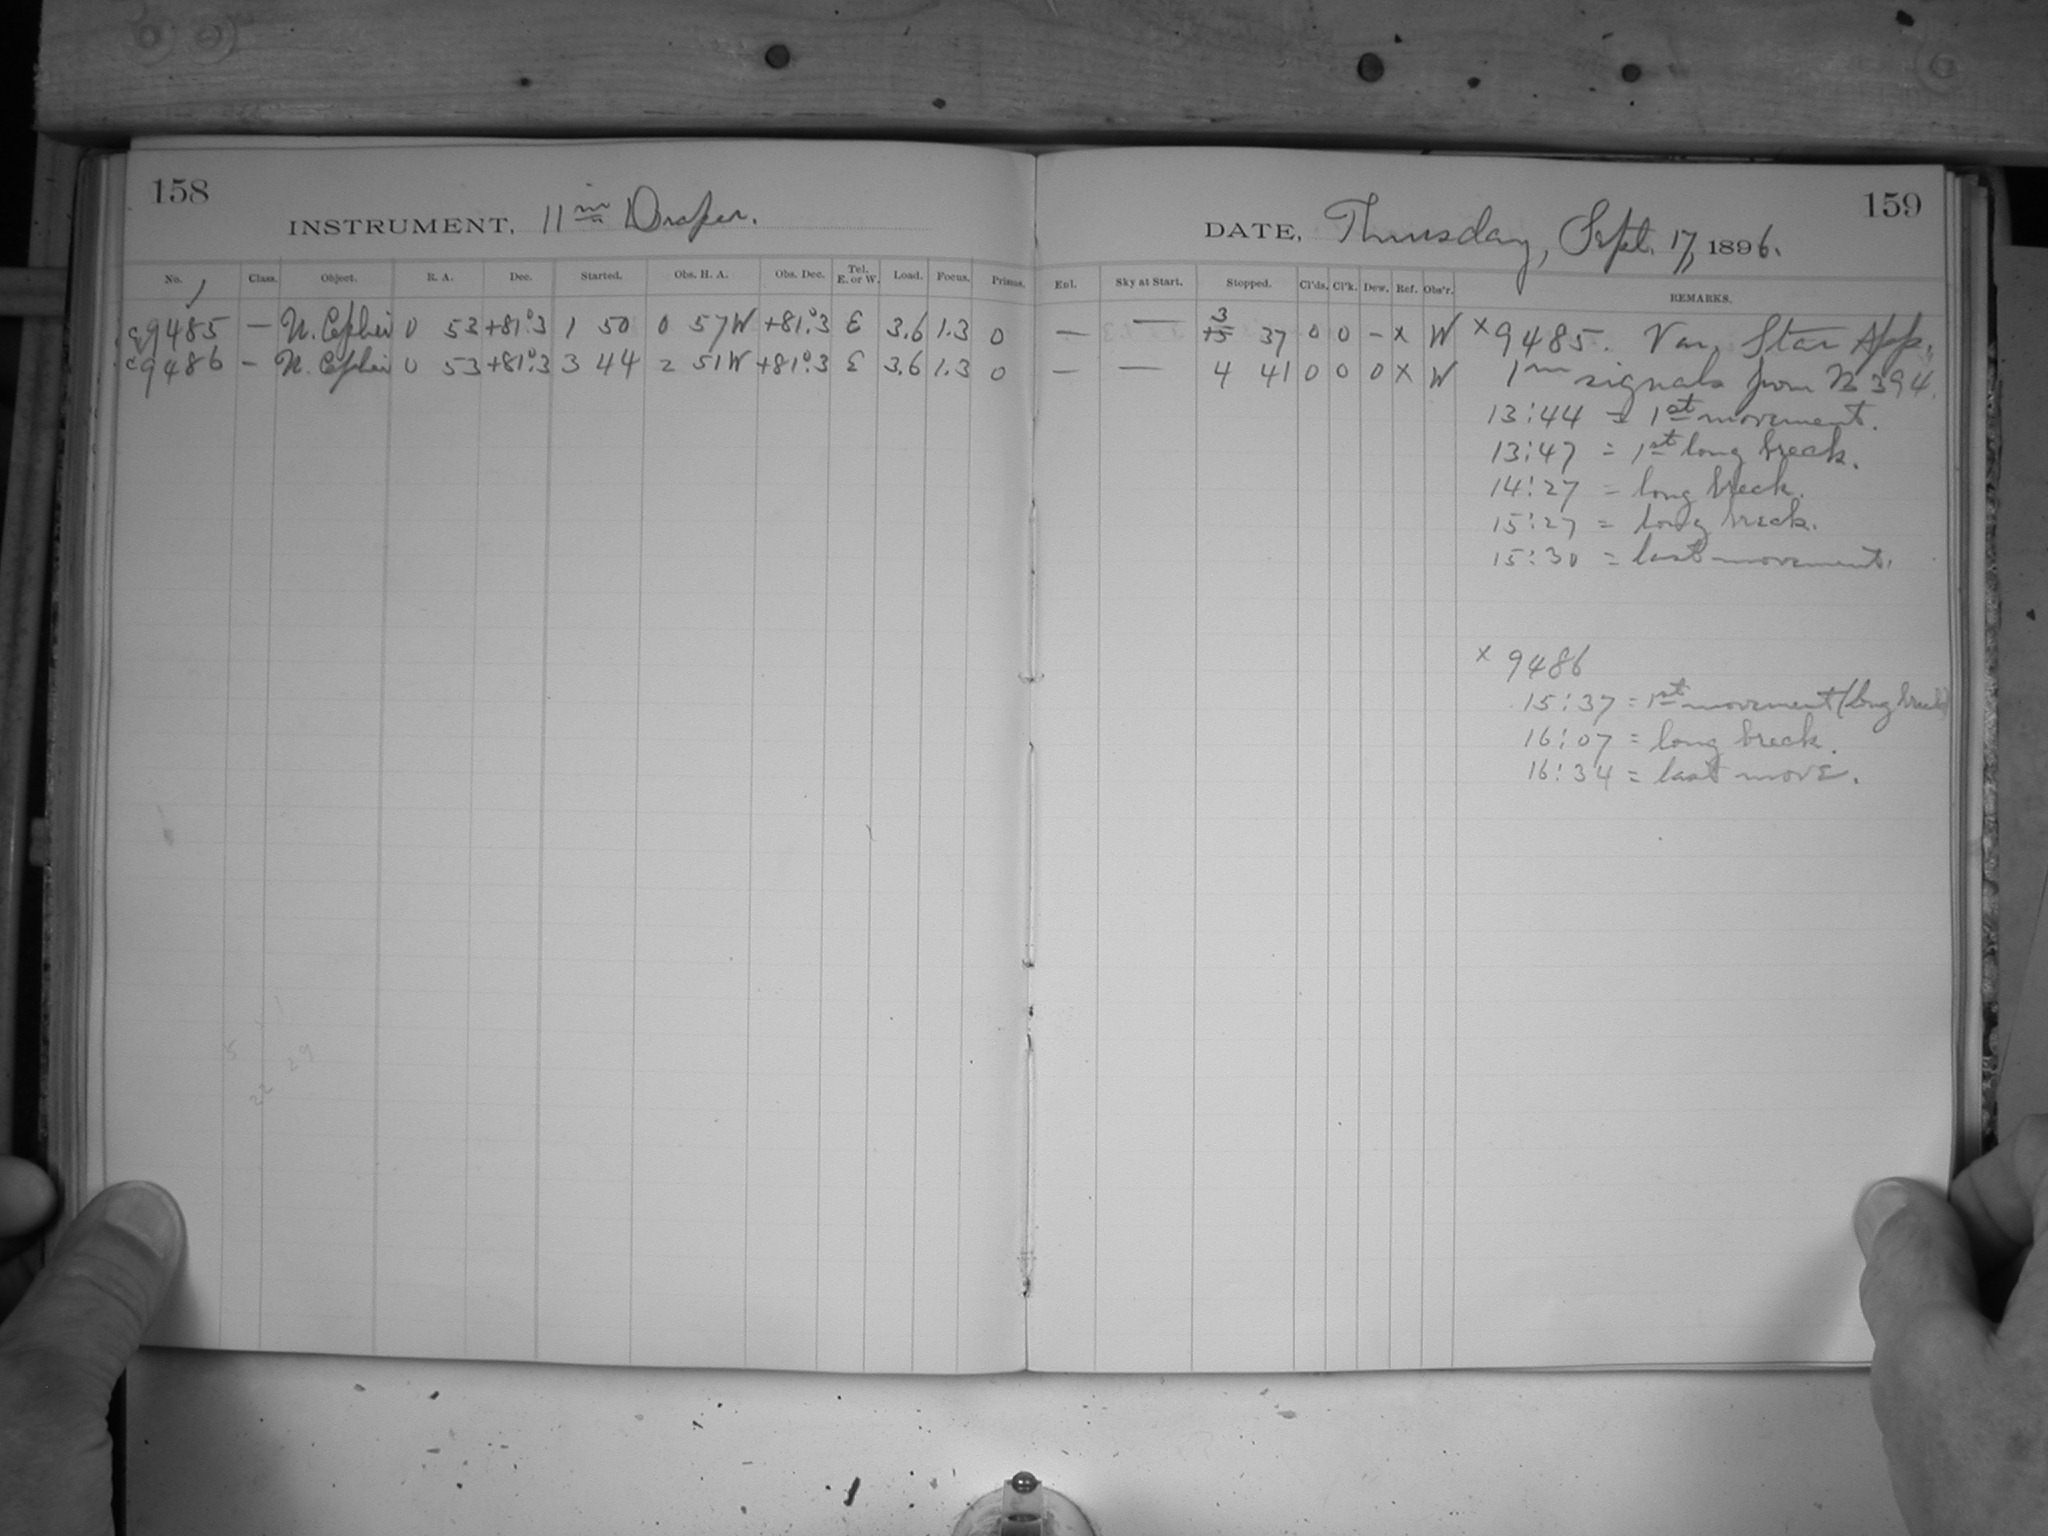 158
INSTRUMENT, 11 in Draper.
No. Class. Object. R. A. Dec. Started. Obs. H. A. Obs. Dec. Tel. E. or W. Load. Focus. Prisms.
c9485 — U. Cephei 0 53 +81°.3 1 50 0 57W +81°.3 E 3.6 1.3 0
c9486 — U. Cephei 0 53 +81°.3 3 44 2 51W +81°.3 E 3.6 1.3 0
22 29
159
DATE, Thursday, Sept. 17, 1896.
Enl. Sky at Start. Stopped. Cl'ds. Cl'k. Dew. Ref. Obs'r. REMARKS.
— — 3 15 37 0 0 – x W x 9485. Var. Star App.
— — 4 41 0 0 0 X W 1m signals from B 394.
13:44 = 1st movement.
13:47 = 1st long break.
14:27 = long break.
15:27 = long break.
15:30 = last movement.
x 9486
15:37 = 1st movement (long break)
16:07 = long break.
16:34 = last move.